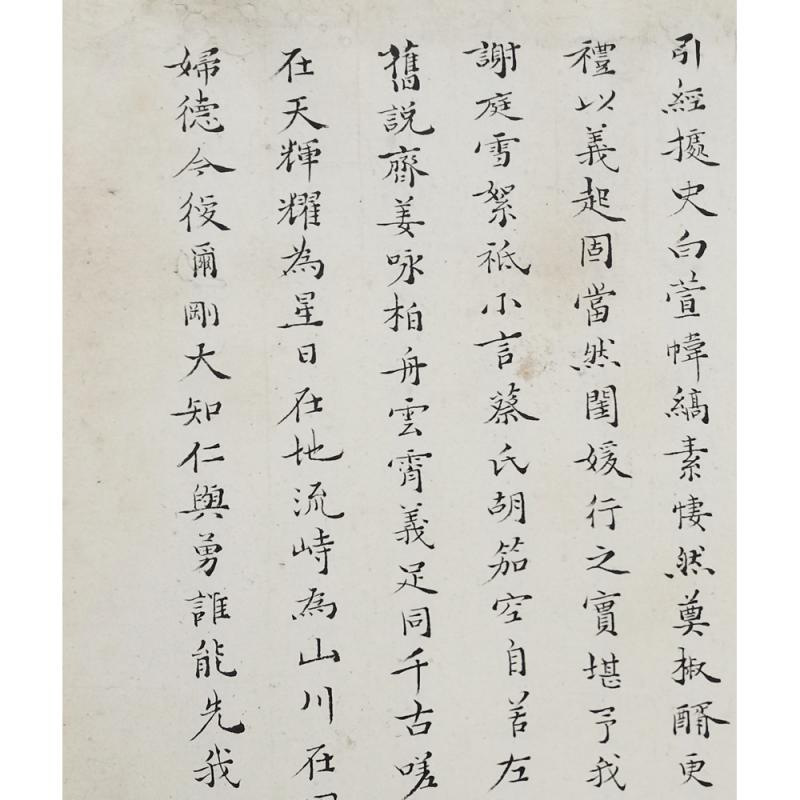 引經據史白萱幃縞素悽然奠椒醑更
禮以義起固當然閨媛行之實堪予我
謝庭雪絮祗小言蔡氏胡笳空自苦左
舊說齊姜咏柏舟雲霄義足同千古嗟
在天輝耀為星日在地流峙為山川在
婦德今役爾剛大知仁與勇誰能先我